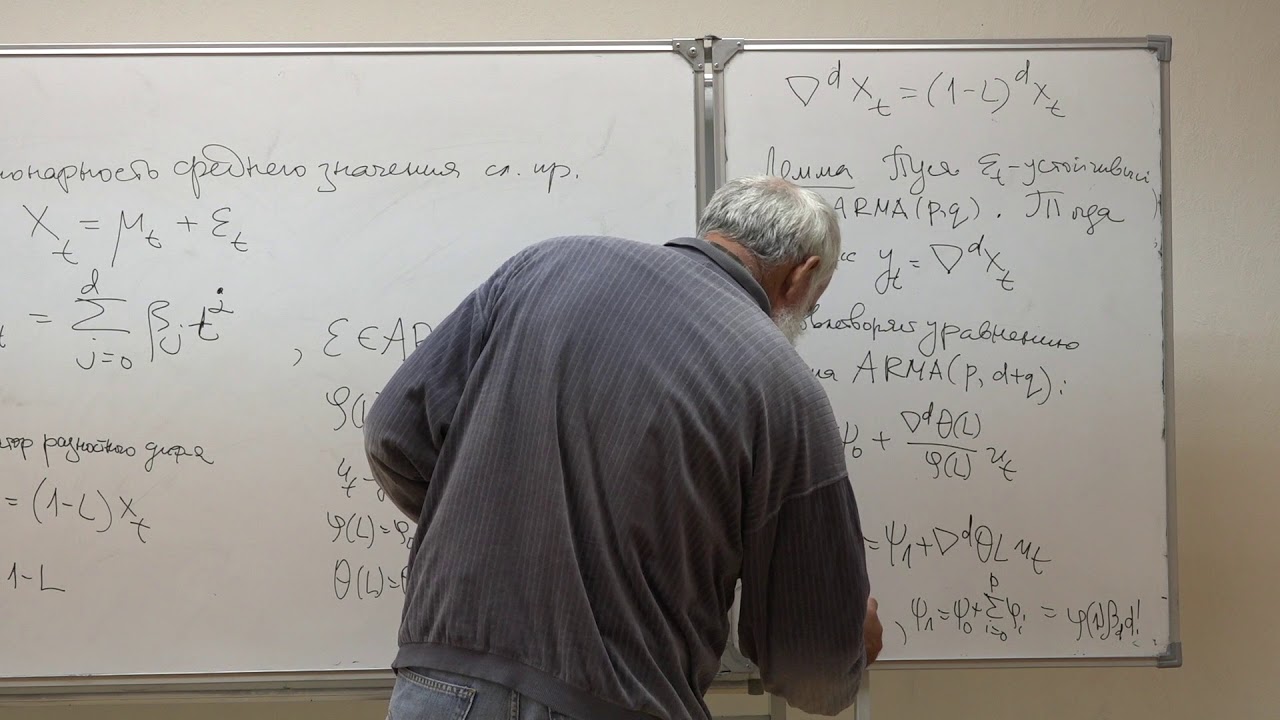 ионарность среднего значения сл. пр.
X_t = μ_t + ε_t
= Σ_{j=0}^{d} β_j t^j
, ε ∈ AR
φ(L
тор разностного
= (1-L) X_t
u_t -
φ(L) = φ_0
1-L
θ(L) =
∇^d X_t = (1-L)^d X_t
Лемма Пуся ε_t - устойчивый
ARMA(p,q). Тогда
y_t = ∇^d X_t
влетворяет уравнению
ARMA(p, d+q):
ψ_0 + ∇^d θ(L) / φ(L) u_t
= ψ_1 + ∇^d θ L u_t
, ψ_1 = ψ_0 * Σ_{i=0}^{p} φ_i = φ(1) β_d d!